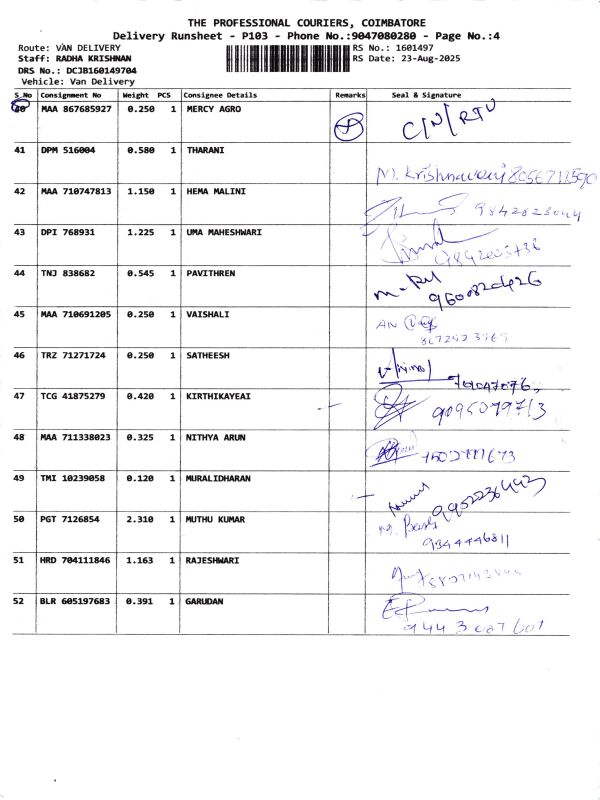 THE PROFESSIONAL COURIERS, COIMBATORE
Delivery Runsheet - P103 - Phone No.:9047080280 - Page No.:4
Route: VAN DELIVERY RS No.: 1601497
Staff: RADHA KRISHNAN RS Date: 23-Aug-2025
DRS No.: DCJB160149704
Vehicle: Van Delivery
S.No Consignment No Weight PCS Consignee Details Remarks Seal & Signature
40 MAA 867685927 0.250 1 MERCY AGRO C/N/RTU
41 DPM 516004 0.580 1 THARANI
M. Krishnaveni
42 MAA 710747813 1.150 1 HEMA MALINI
9842023044
43 DPI 768931 1.225 1 UMA MAHESHWARI
44 TNJ 838682 0.545 1 PAVITHREN
9600820426
45 MAA 710691205 0.250 1 VAISHALI
46 TRZ 71271724 0.250 1 SATHEESH
47 TCG 41875279 0.420 1 KIRTHIKAYEAI
9095079713
48 MAA 711338023 0.325 1 NITHYA ARUN
49 TMI 10239058 0.120 1 MURALIDHARAN
9952236443
50 PGT 7126854 2.310 1 MUTHU KUMAR
9344446811
51 HRD 704111846 1.163 1 RAJESHWARI
52 BLR 605197683 0.391 1 GARUDAN
9443087601